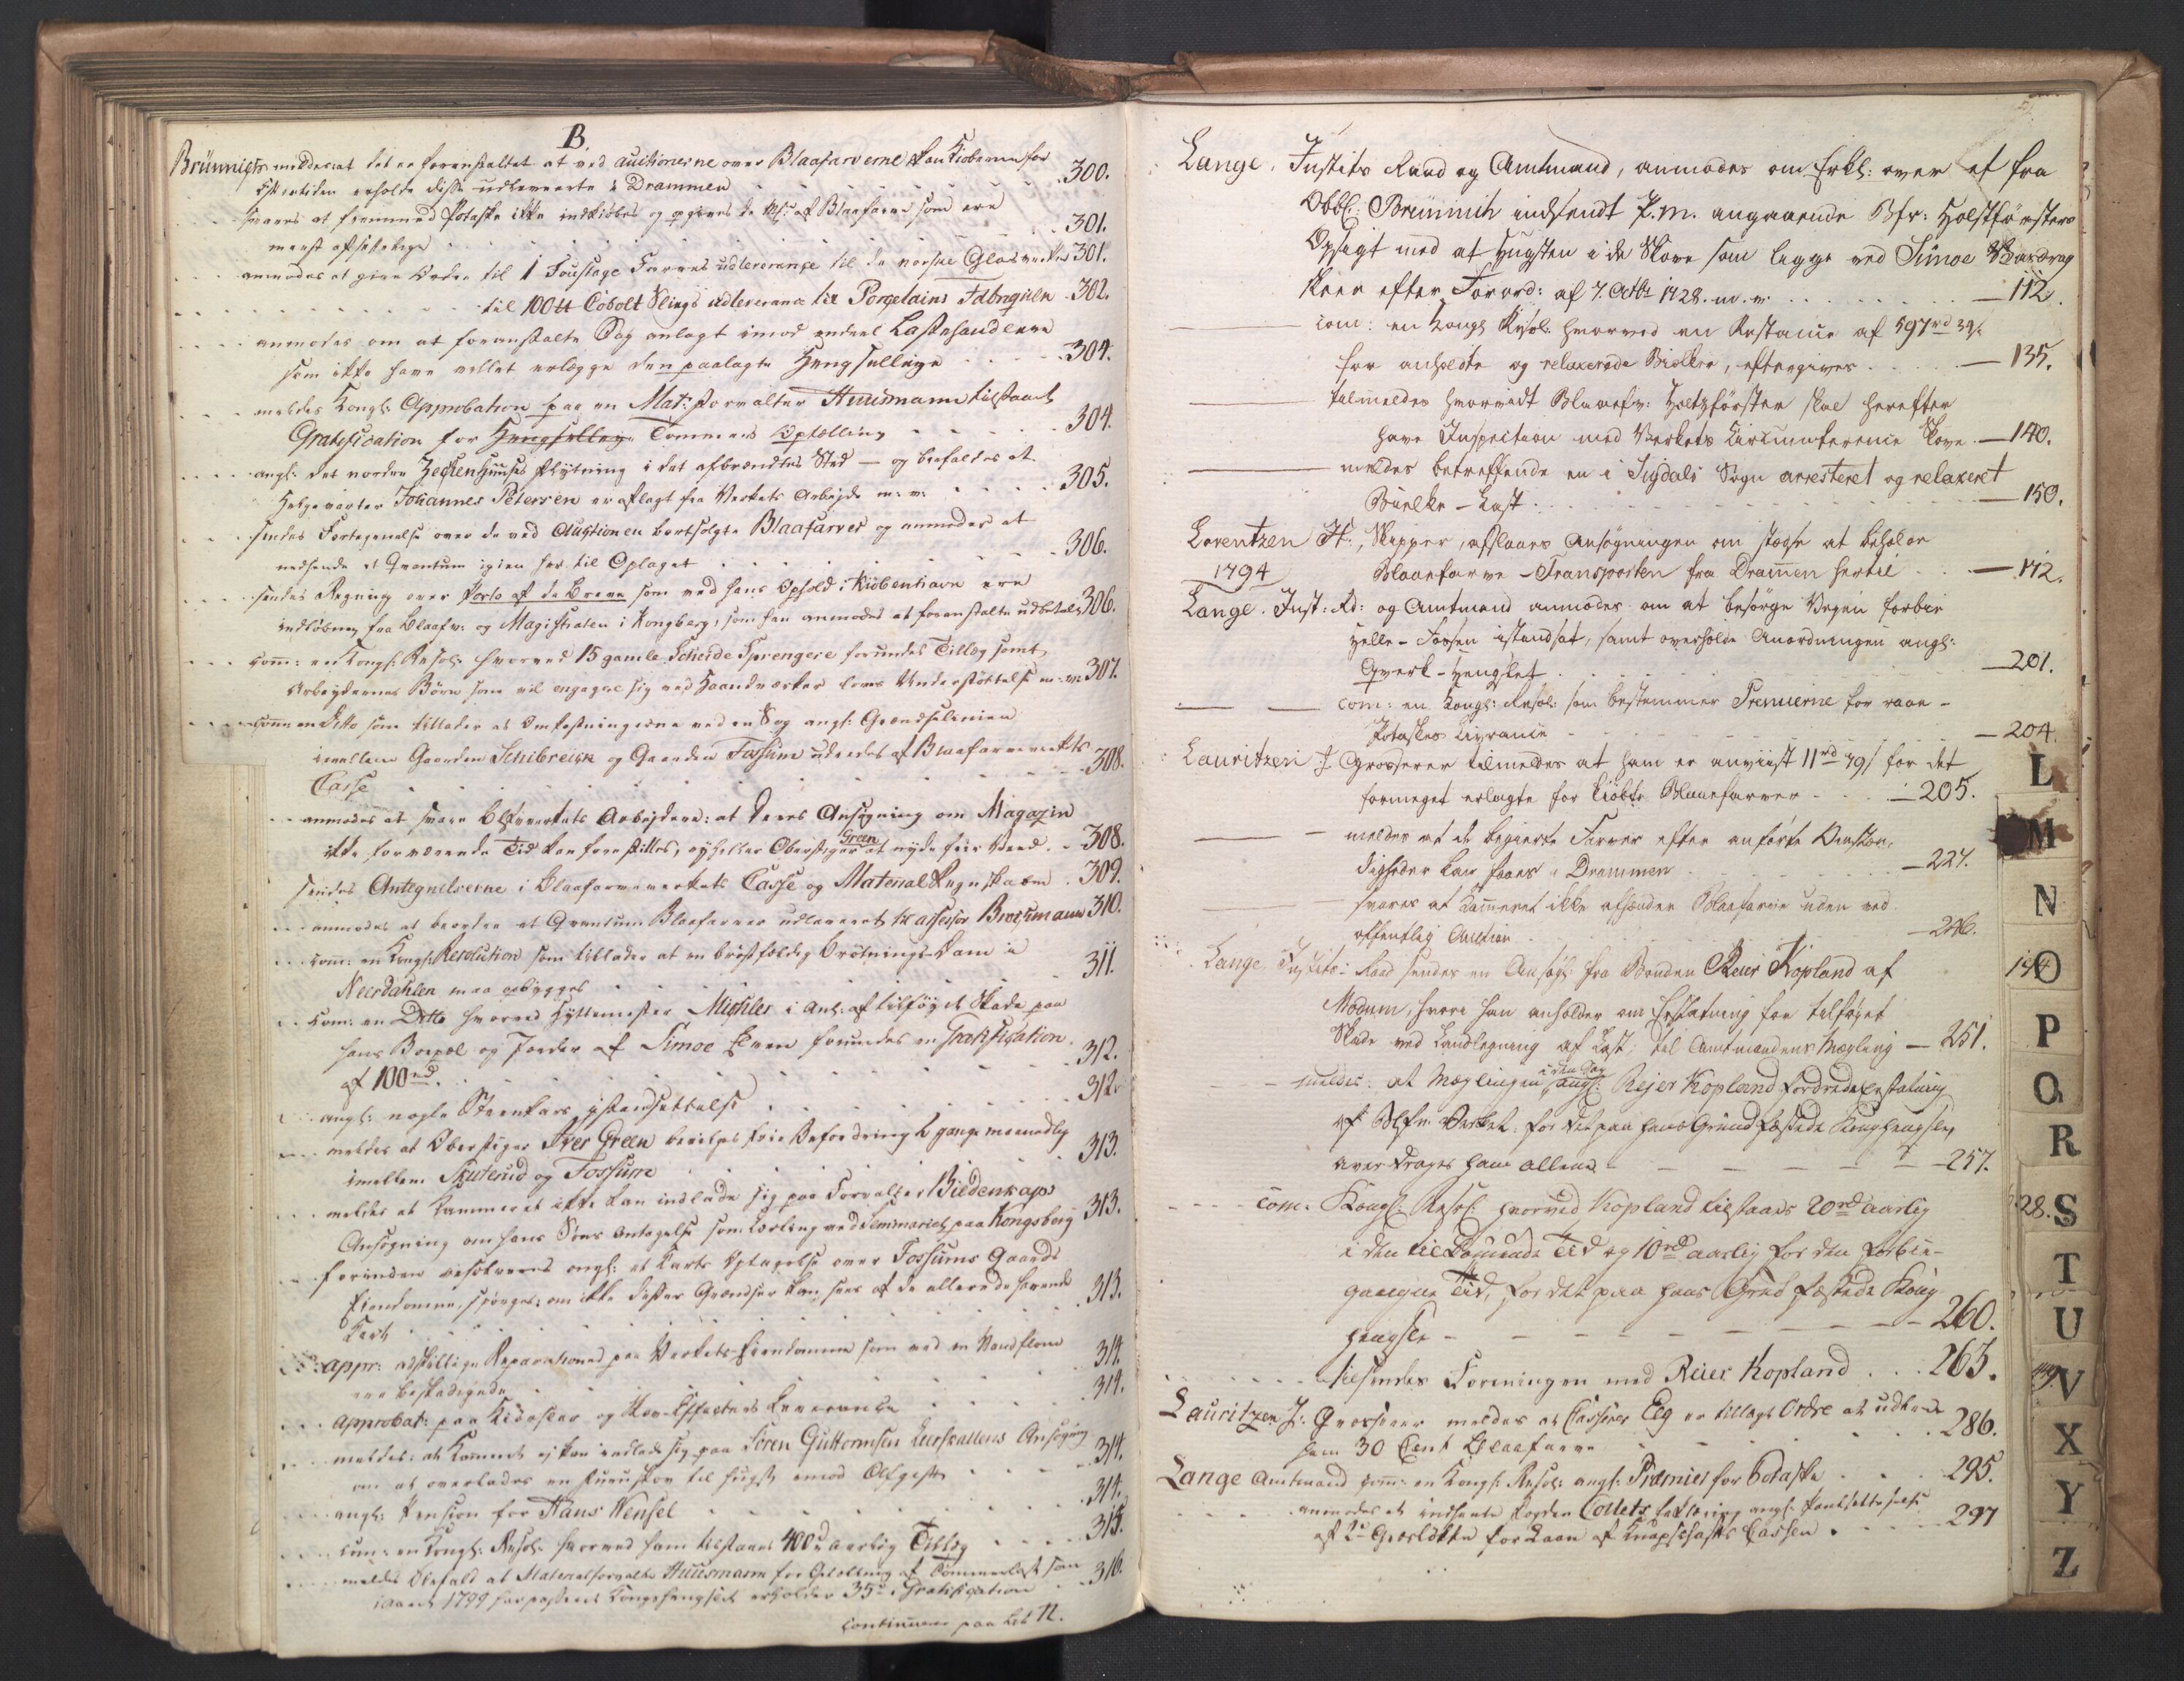 B.
Brünnichs meddeeles at det er foranstaltet at ved auctionerne over Blaafarverne kan Kioberne for
Eftertiden erholde disse udleverte i Drammen 300.
svares at fremmed Potaske ikke indkiøbes og opgives de No: af Blaafarve som ere
meest afsættelige 301.
anmodes at give Ordre til 1 Foustage Farves udleverance til de norske Glasværker 301.
til 100 ℔ Cobolt Sliegs udleverance til Porcelains Fabriquen 302.
anmodes om at foranstalte Sag anlagt imod endeel Lasthandlere
som ikke have villet erlægge den paalagte Hengselleye 304.
meldes Kongl: Approbation paa en Mat: forvalter Huusmann tilstaaet
Gratification for Tømmers Optælling 304.
angl: det norden Zechenhuuses flytning i det afbrændtes Sted — og befales at
Johannes Petersen er aflagt fra Verkets Arbejde m: v: 305.
sendes Fortegnelse over de ved Auctionen bortsolgte Blaafarver og anmodes at
nedsende et Qvantum igien her til Oplaget 306.
sendes Regning over Porto af de Breve som ved hans Ophold i Kiöbenhavn ere
indløbne fra Blaafv: og Magistraten i Kongberg, som han anmodes at foranstalte udbetalt 306.
com: en Kongl: Resol: hvorved 15 gamle Scheide Sprengere forundes Tillæg samt
Arbejdernes Börn som vil engagere sig ved Haandværker loves Understøttelse m: v: 307.
com: en Ditto som tillader at Omkostningerne ved en Sag angl: Grændselinien
imellem Gaarden Schibreien og Gaarden Fossum udredes af Blaafarveverkets
Casse 308.
anmodes at svare Blfverkets Arbejdere: at deres Ansøgning om Magazin
ikke for nærværende Tid kan forestilles, ey heller Oberstiger Green at nyde frie 308.
sendes Antegnelserne i Blaafarveverkets Casse og Material Regnskaber 309.
anmodes at beordre et Qvantum Blaafarver udleveret til assessor Brozmann 310.
com: en Kongl: Resolution som tillader at en brøstfældig Drötnings-Dam i
Neerdahlen maa opbygges 311.
com: en Ditto hvorved Hyttemester Michler i Anl: af tilføyet Skade paa
hans Boepæl og Jorder af Simoe Elven forundes en Gratification
af 100 rd. 312.
angl: nogle Steenkars istandsættelse 312.
meldes at Oberstiger Iver Green bevilges frie Befordring 2 gange maanedlig
imellem Skuterud og Fossum 313.
meldes at Kammeret ikke kan indlade sig paa Forvalter Bildenkaps
Ansøgning om hans Søns Antagelse som Lærling ved Seminariet paa Kongsberg 313.
forinden resolveres angl: et Karts Optagelse over Fossums Gaards
Eiendomme, spørges: om ikke disses Grændser kan sees af de allerede havende
Kart 313.
appr: adskillige Reparationer paa Verkets-Eiendomme som ved en Vandflom
ere beskadigede 314.
Approbat: paa Kidoster og Skov-Effecters Leverance 314.
meldes: at Kammeret ej kan indlade sig paa Søren Guttormsen Leerskallens Ansøgning
om at overlades en Furuskov til hugst imod Afgift 314.
angl: Pension for Hans Wensel 314.
com: en Kongl: Resol: hvorved ham tilstaaes 400 rd aarlig Tillæg 315.
meldes Befal at Materialforvalter Huusmann for Optælling af Tømmerlast som
i Aaret 1799 har passeret Kongshengslet erholder 35 rd Gratification 316.
continueres paa Lit N.
Lange. Justits Raad og Amtmand, anmodes om Erkl: over et fra
Obbl: Brünnich indsendt P. m. angaaende Bfv: Holtzförsters
Opsigt med at Hugsten i de Skove som ligge ved Simoe Vasdrag
skeer efter Forord: af 7. Octbr 1728. m. v. — 112.
com: en Kongl: Resol: hvorved en Restance af 597 rd 39 s.
for anholdte og relaxerede Bielker, eftergives — 135.
tilmeldes hvorvidt Blaaefv: Holtzförster skal herefter
have Inspection med Verkets Circumference Skove — 140.
meldes betreffende en i Sigdals Sogn arresteret og relaxeret
Bielke-Last — 150.
Lorentzen H:, Skipper, afslaaes Ansøgningen om stedse at beholde
1794
Blaaefarve-Transporten fra Drammen hertil — 172.
Lange. Just: Rd: og Amtmand anmodes om at besørge Vejen forbi
Helle-Fossen istandsat, samt overholde Anordningen angl:
Qværk-Hengslet — 201.
com: en Kongl: Resol: som bestemmer Premierne for raae-
Potaskes Livrance — 204.
Lauritzen J. Grosserer tilmeldes at ham er anviist 11 rd 79 s for det
formeget erlagte for kiøbte Blaaefarver — 205.
meldes at de begierte Farver efter anførte Omstæn-
digheder kan faaes i Drammen — 224.
svares at Kammeret ikke afhænder Blaafarve uden ved
offentlig Auction — 246.
Lange, Justits-Raad sendes en Ansøgn: fra Bonden Reier Kopland af
Modum, hvori han anholder om Erstatning for tilføyet
Skade ved Landlægning af Last; til Amtmandens Mægling — 251.
meldes: at Mæglingen i den Sag angl: Rejer Kopland fordrede Erstatning
af Blfv: Verket: for det paa hans Grund fæstede Kong hengsle,
overdrages ham allene — 257.
com: Kongl: Resol: hvorved Kopland tilstaaes 20 rd aarlig
i den tilkommende Tid og 10 rd aarlig for den forbie-
gangne Tid, for det paa hans Grund fæstede Kong
hengsle — 260.
tilsendes Foreningen med Reier Kopland 263.
Lauritzen J: Grosserer meldes at Casserer Elg er tillagt Ordre at udlevere
ham 30 Cent Blaafarve 286.
Lange Amtmand com: en Kongl: Resol: angl: Præmier for Potaske 295.
anmodes at indhente Fogden Collets Erklæring angl: Pantsættelse
af 2 for Laan af Knapschafts Cassen 297
L
M
N
O
P
Q
R
S
T
U
V
X
Y
Z